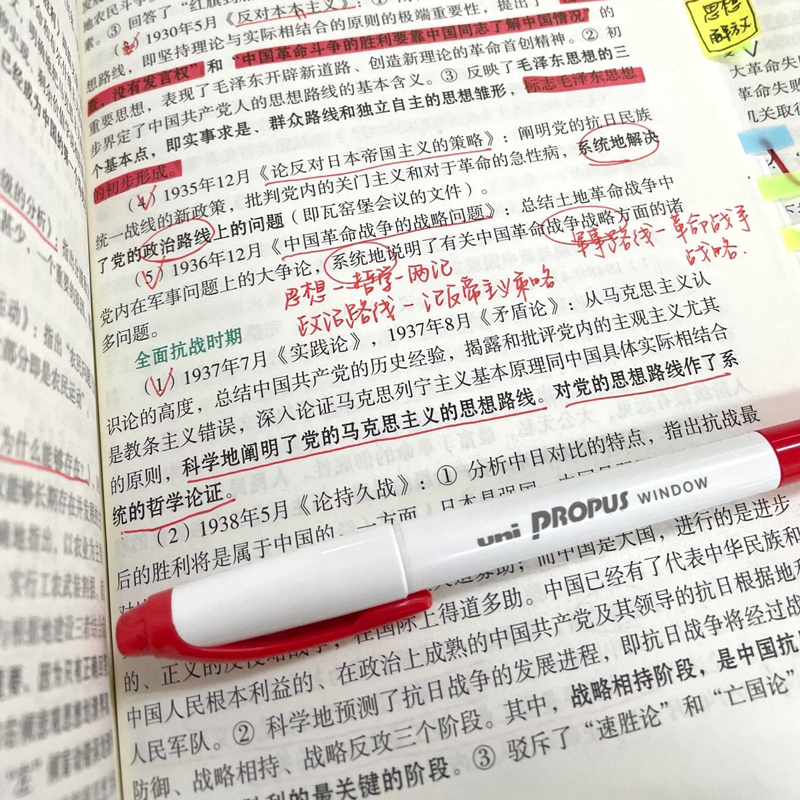 ③ 回答了“红旗到
(3) 1930年5月《反对本本主义》：①
素。
想路线，即坚持理论与实际相结合的原则的极端重要性，提出了
查，没有发言权”和“中国革命斗争的胜利要靠中国同志了解中国情况”的
重要思想，表现了毛泽东开辟新道路、创造新理论的革命首创精神。② 初
步界定了中国共产党人的思想路线的基本含义。③ 反映了毛泽东思想的三
个基本点，即实事求是、群众路线和独立自主的思想雏形，标志毛泽东思想
的初步形成。
(4) 1935年12月《论反对日本帝国主义的策略》：阐明党的抗日民族
统一战线的新政策，批判党内的关门主义和对于革命的急性病，系统地解决
了党的政治路线上的问题（即瓦窑堡会议的文件）。
(5) 1936年12月《中国革命战争的战略问题》：总结土地革命战争中
党内在军事问题上的大争论，系统地说明了有关中国革命战争战略方面的诸
多问题。
思想—哲学—两论
政治路线—论反帝主义策略
军事路线—革命战争
战略.
全面抗战时期
(1) 1937年7月《实践论》，1937年8月《矛盾论》：从马克思主义认
识论的高度，总结中国共产党的历史经验，揭露和批评党内的主观主义尤其
是教条主义错误，深入论证马克思列宁主义基本原理同中国具体实际相结合
的原则，科学地阐明了党的马克思主义的思想路线。对党的思想路线作了系
统的哲学论证。
(2) 1938年5月《论持久战》：① 分析中日对比的特点，指出抗战最
后的胜利将是属于中国的。一方面，日本是强国，
而中国是大国，进行的是进步
的、正义的反侵略战争，在国际上得道多助。中国已经有了代表中华民族和
中国人民根本利益的、在政治上成熟的中国共产党及其领导的抗日根据地和
人民军队。② 科学地预测了抗日战争的发展进程，即抗日战争将经过战
防御、战略相持、战略反攻三个阶段。其中，战略相持阶段，是中国抗
胜利的最关键的阶段。③ 驳斥了“速胜论”和“亡国论”
uni PROPUS WINDOW
思想
解放
大革命失
革命失败
几关取得